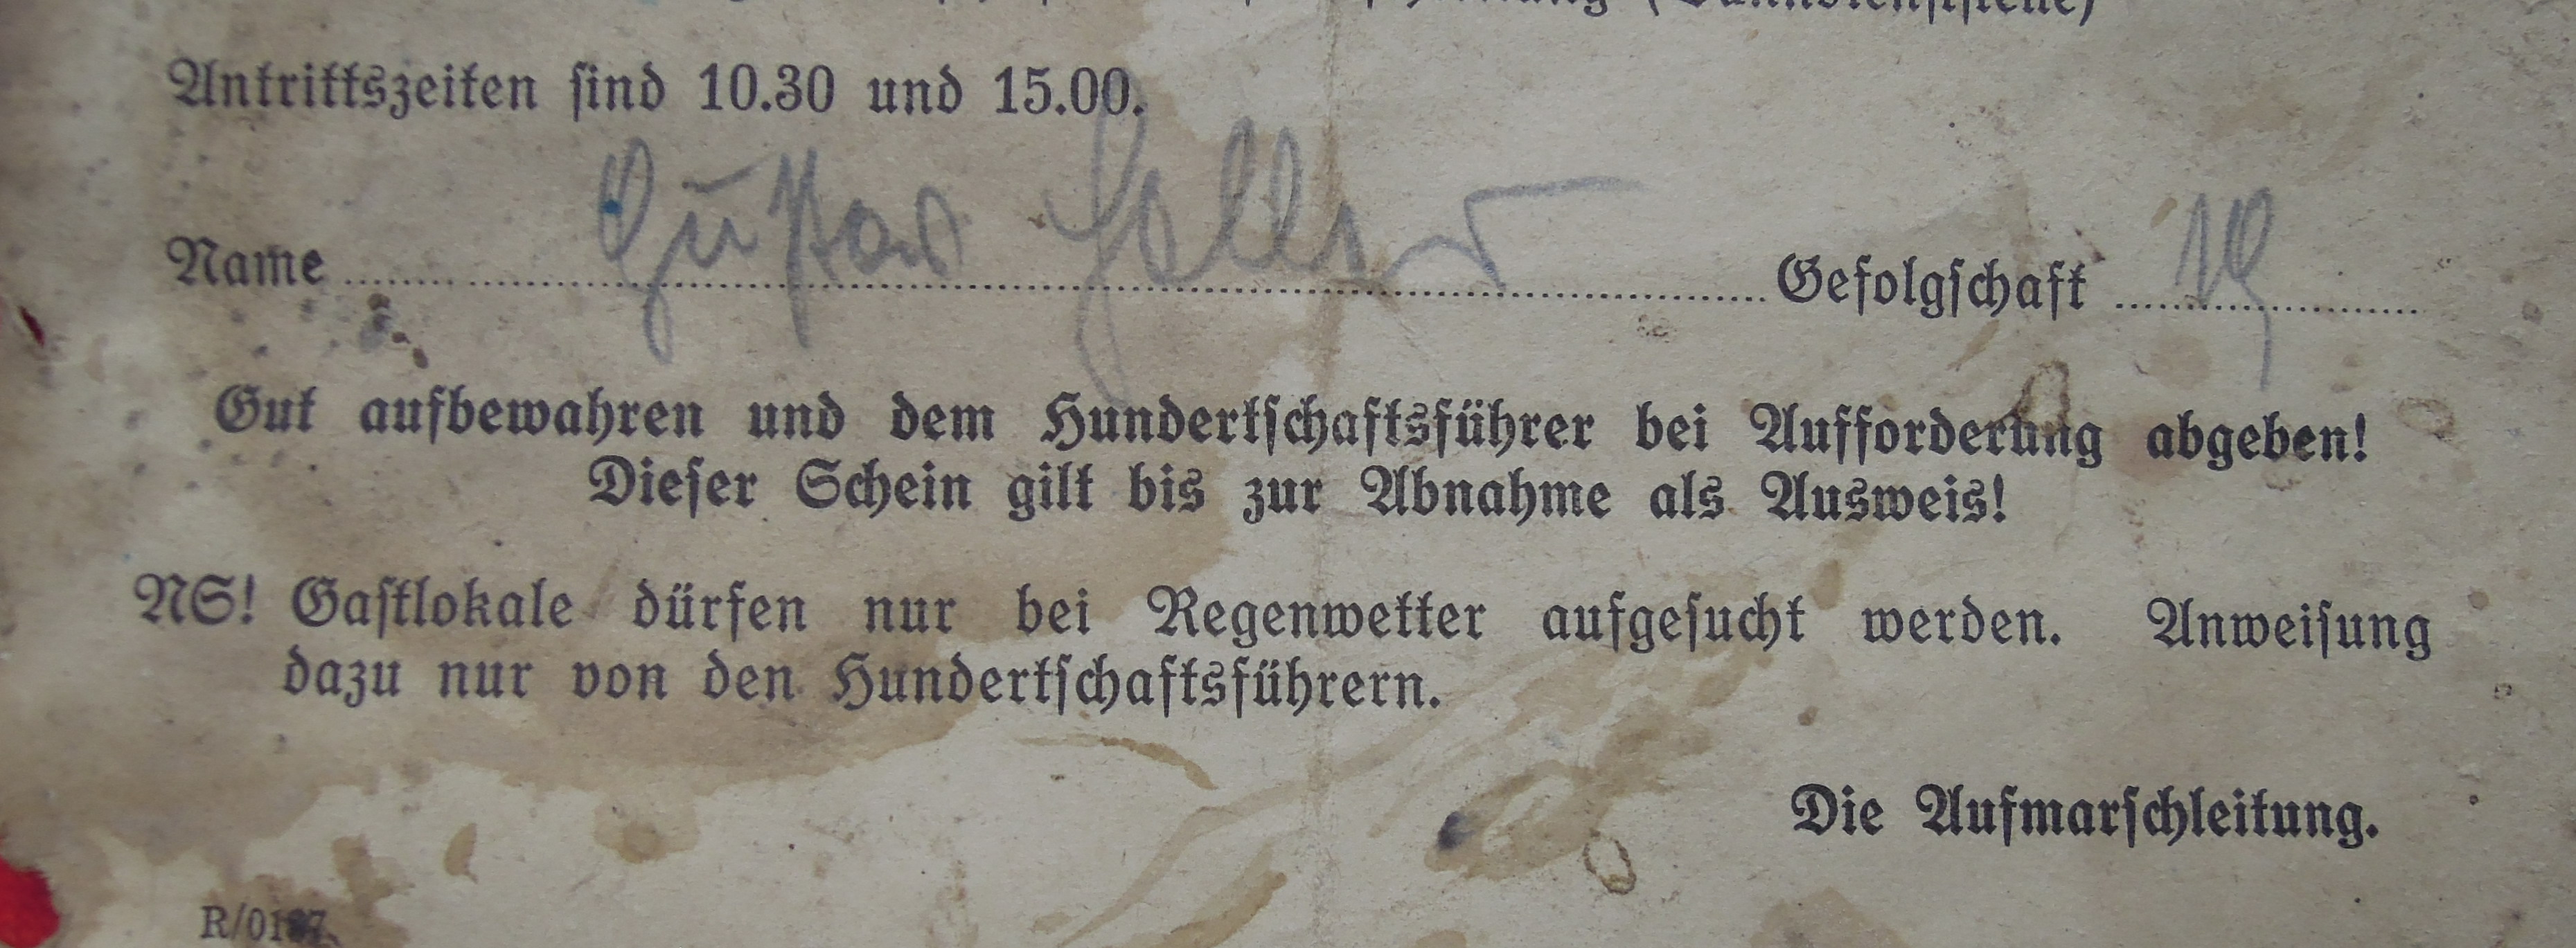 (Banndienststelle)
Antrittszeiten sind 10.30 und 15.00.
Name Gustav Gefolgschaft 19
Gut aufbewahren und dem Hundertschaftsführer bei Aufforderung abgeben!
Dieser Schein gilt bis zur Abnahme als Ausweis!
NS! Gastlokale dürfen nur bei Regenwetter aufgesucht werden. Anweisung
dazu nur von den Hundertschaftsführern.
Die Aufmarschleitung.